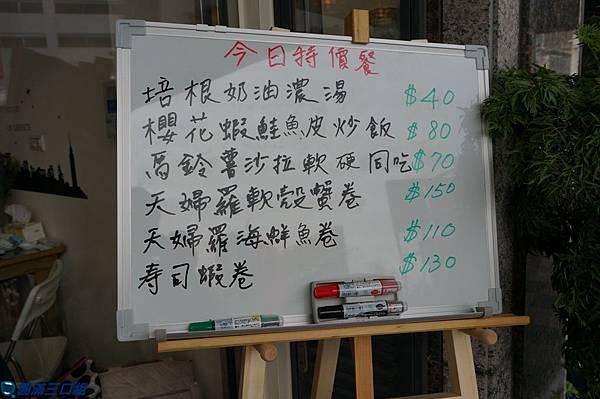 今日特價餐
培根奶油濃湯 $40
櫻花蝦鮭魚皮炒飯 $80
馬鈴薯沙拉軟硬同吃 $70
天婦羅軟殼蟹卷 $150
天婦羅海鮮魚卷 $110
寿司蝦卷 $130
圓滿三口組